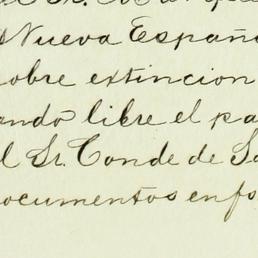 el Sr.
Nueva Españ
sobre extincion
ando libre el pa
l Sr. Conde de Sa
ocumentos en fo